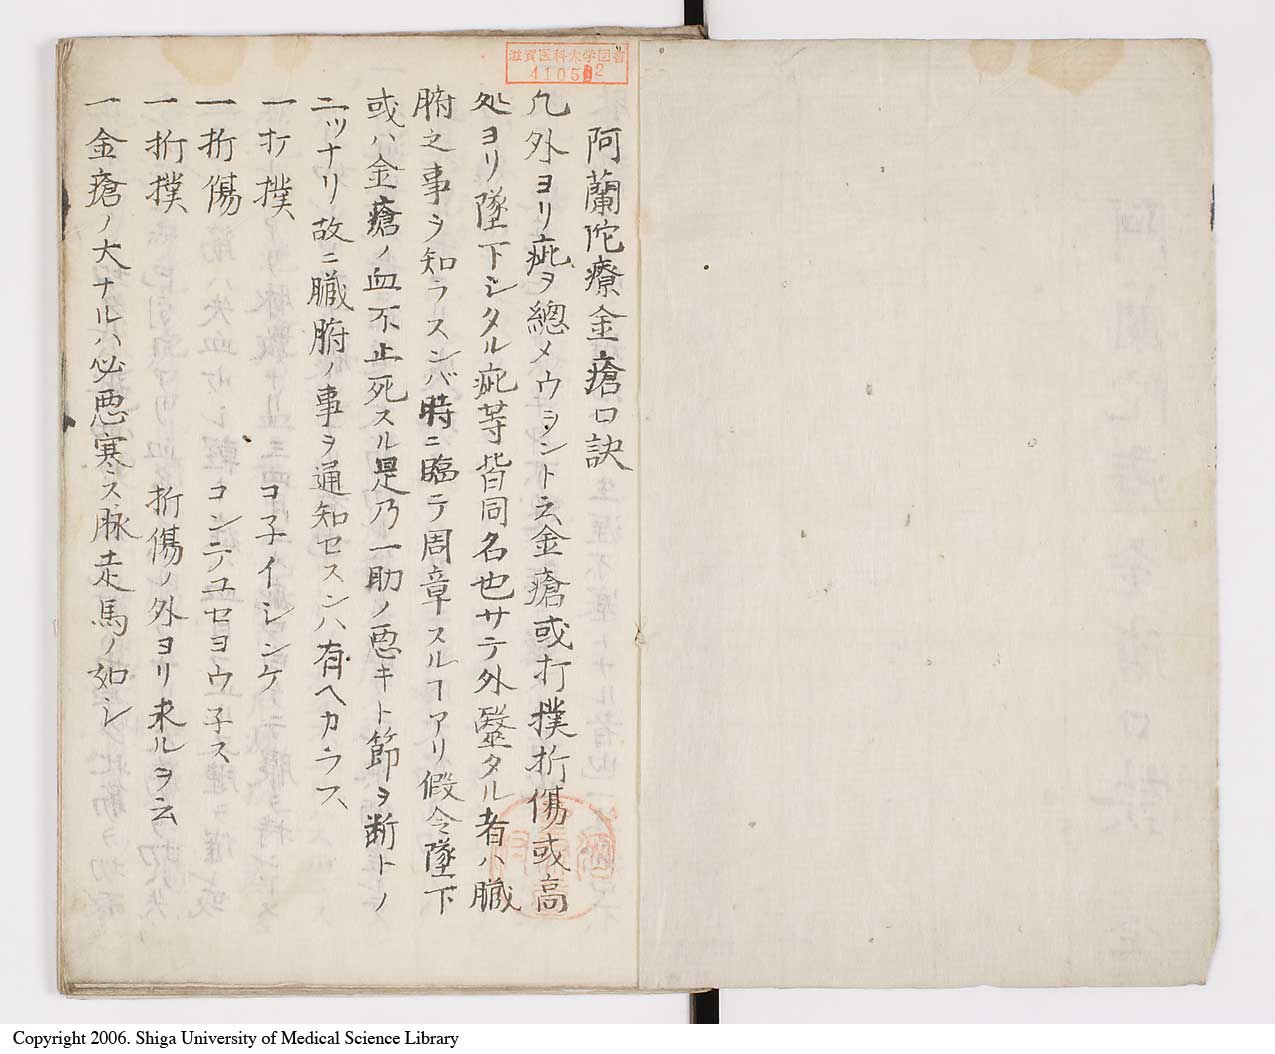 滋賀医科大学図書
41052
阿蘭陀療金瘡口訣
凡外ヨリ疵ヲ總メウヲントト云金瘡或打撲折傷或高
処ヨリ墜下シタル疵等皆同名也サテ外毉タル者ハ臓
腑之事ヲ知ラスンバ時ニ臨テ周章スルヿアリ假令墜下
或ハ金瘡ノ血不止死スル是乃一助ノ悪キト節ヲ断トノ
二ツナリ故ニ臓腑ノ事ヲ通知セスンハ有ヘカラス
一打撲 コ子イシンケ
一折傷 コンテユセヨウ子ス
一折撲 折傷ノ外ヨリ来ルヲ云
一金瘡ノ大ナルハ必悪寒ス脉走馬ノ如シ
Copyright 2006. Shiga University of Medical Science Library